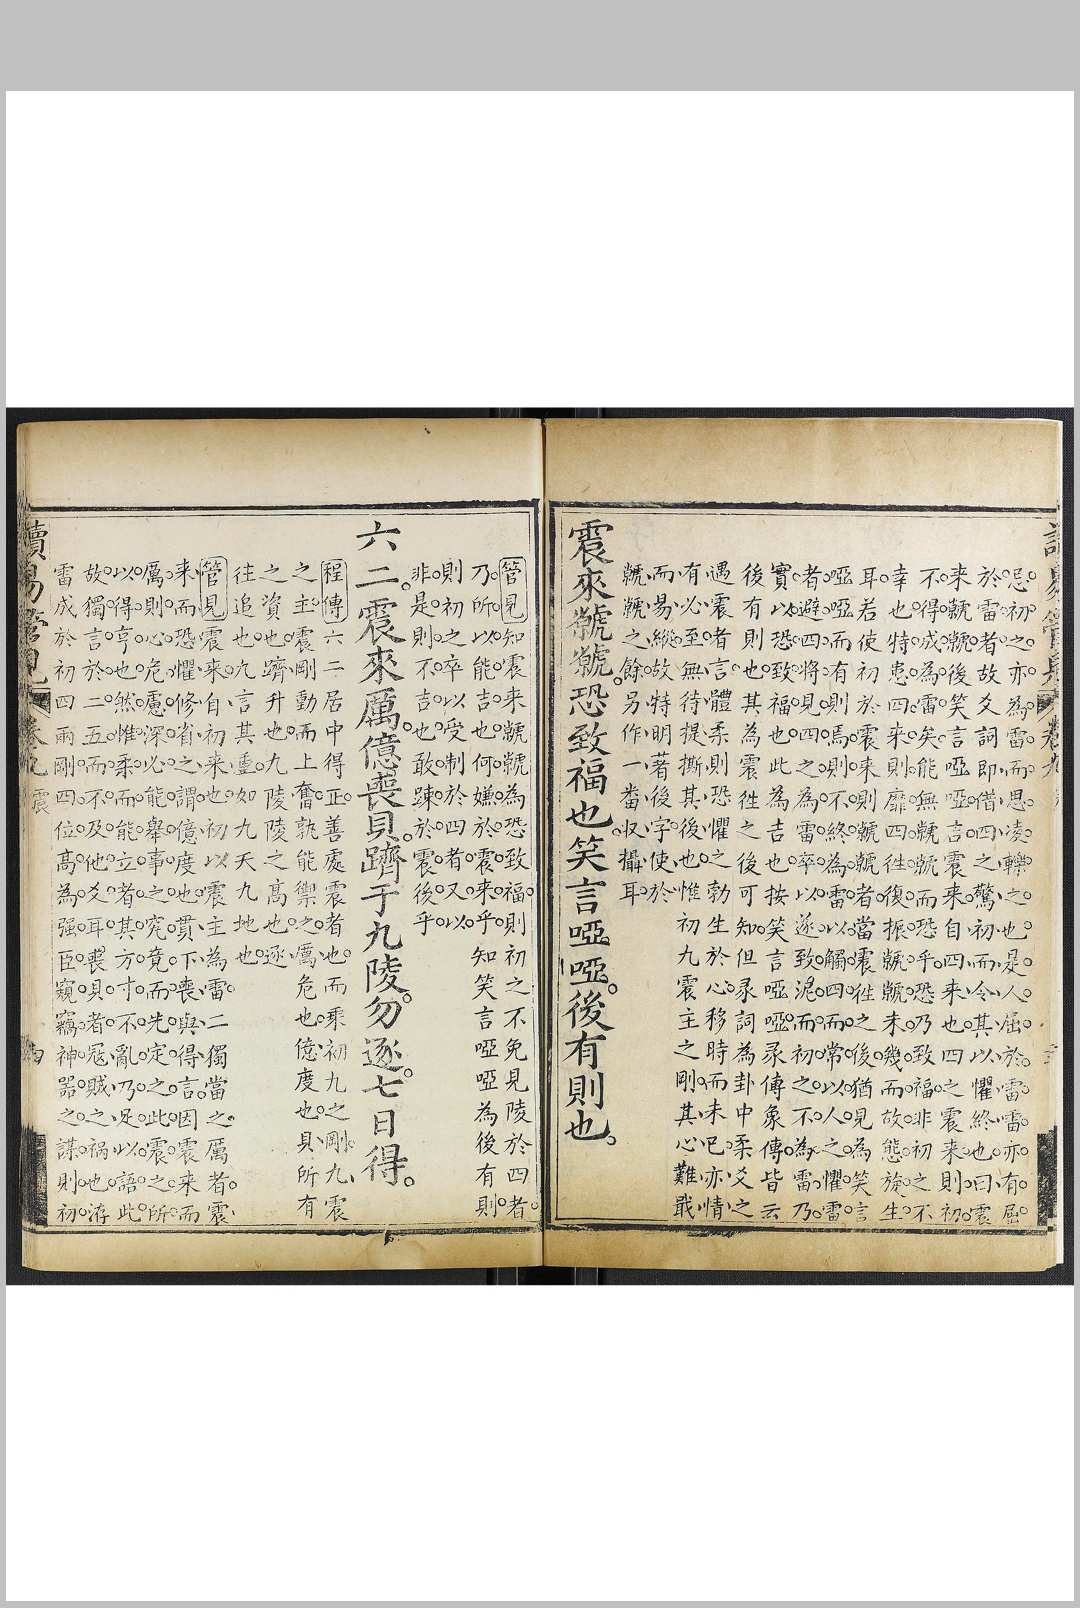 忌初之亦為雷而思凌轢之也是人屈於雷雷亦有屈
於雷者故爻詞即借四之驚初而令其以懼終也曰震
来虩虩後笑言啞啞言震来自四来也四之震来則初
不得成為雷矣能無虩虩而恐乎恐乃致福非初之不
幸也特患四来則靡四徃復振虩虩未幾而故態旋生
耳若使初於震来則虩虩者當震徃之後猶見為笑言
啞啞而有則焉則不終為雷以觸四而常以人之懼雷
者避四將見四之為雷卒以遂致泥而初之不為雷乃
實以恐致福也此為吉也按笑言啞啞彖傳象傳皆云
後有則也其為震徃之後可知但彖詞為卦中柔爻之
遇震者言體柔則恐懼之勃生於心移時而未已亦情
有必至無待提撕其後也惟初九震主之剛其心難戢
而易縱故特明著後字使於
虩虩之餘另作一番収攝耳
震來虩虩恐致福也笑言啞啞後有則也
管見知震来虩虩為恐致福則初之不免見陵於四者
乃所以能吉也何嫌於震来乎知笑言啞啞為後有則
則初之卒以受制於四者又以
非是則不吉也敢踈於震後乎
六二震來厲億喪貝躋于九陵勿逐七日得
程傳六二居中得正善處震者也而乘初九之剛九震
之主震剛動而上奮孰能禦之厲危也億度也貝所有
之資也躋升也九陵陵之髙也逐
往追也九言其重如九天九地也
管見震来自初来也初以震主為雷二獨當之厲者震
来而恐懼修省之謂億度也貫下喪與得言因震来而
厲則心危慮深必能舉事之究竟而先定之此震之所
以得亨也然惟柔而能立者其方寸不亂乃足以語此
故獨言於二五而不及他爻耳喪貝者冦賊之祸也洊
雷成於初四兩剛四位髙為强臣窺竊神器之謀則初
讀易管見 卷九 震